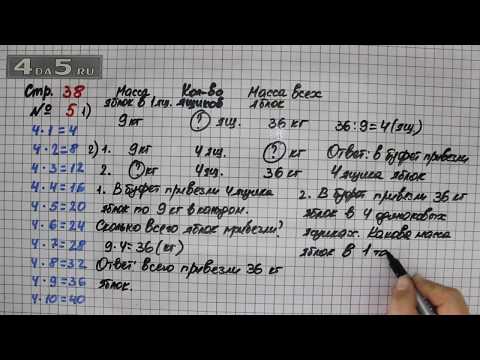 4DA5.RU
Стр. 38
№ 5
4·1=4
4·2=8
4·3=12
4·4=16
4·5=20
4·6=24
4·7=28
4·8=32
4·9=36
4·10=40
Масса Кол-во Масса всех
яблок в 1 ящ. ящиков яблок
1) 9 кг ? ящ. 36 кг
2) 1. 9 кг 4 ящ. ? кг
2. ? кг 4 ящ. 36 кг
1. В буфет привезли 4 ящика
яблок по 9 кг в каждом.
Сколько всего яблок привезли?
9·4=36 (кг)
Ответ: всего привезли 36 кг
яблок.
36:9=4 (ящ.)
Ответ: в буфет привезли
4 ящика яблок
2. В буфет привезли 36 кг
яблок в 4 одинаковых
ящиках. Какова масса
яблок в 1 та